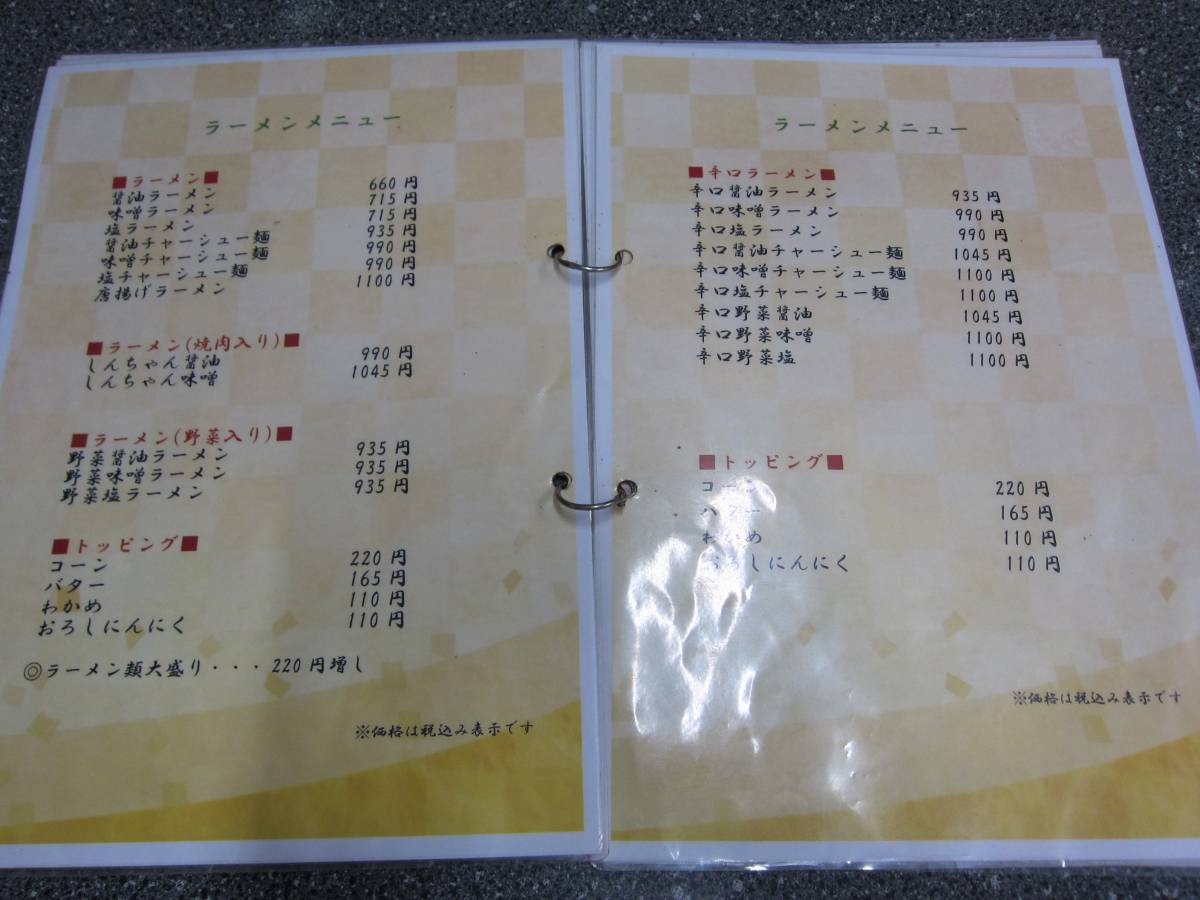 ラーメンメニュー
■ラーメン■
醤油ラーメン 660円
味噌ラーメン 715円
塩ラーメン 715円
醤油チャーシュー麺 935円
味噌チャーシュー麺 990円
塩チャーシュー麺 990円
唐揚げラーメン 1100円
■ラーメン(焼肉入り)■
しんちゃん醤油 990円
しんちゃん味噌 1045円
■ラーメン(野菜入り)■
野菜醤油ラーメン 935円
野菜味噌ラーメン 935円
野菜塩ラーメン 935円
■トッピング■
コーン 220円
バター 165円
わかめ 110円
おろしにんにく 110円
◎ラーメン類大盛り・・・220円増し
※価格は税込み表示です
ラーメンメニュー
■辛口ラーメン■
辛口醤油ラーメン 935円
辛口味噌ラーメン 990円
辛口塩ラーメン 990円
辛口醤油チャーシュー麺 1045円
辛口味噌チャーシュー麺 1100円
辛口塩チャーシュー麺 1100円
辛口野菜醤油 1045円
辛口野菜味噌 1100円
辛口野菜塩 1100円
■トッピング■
コーン 220円
バター 165円
わかめ 110円
おろしにんにく 110円
※価格は税込み表示です